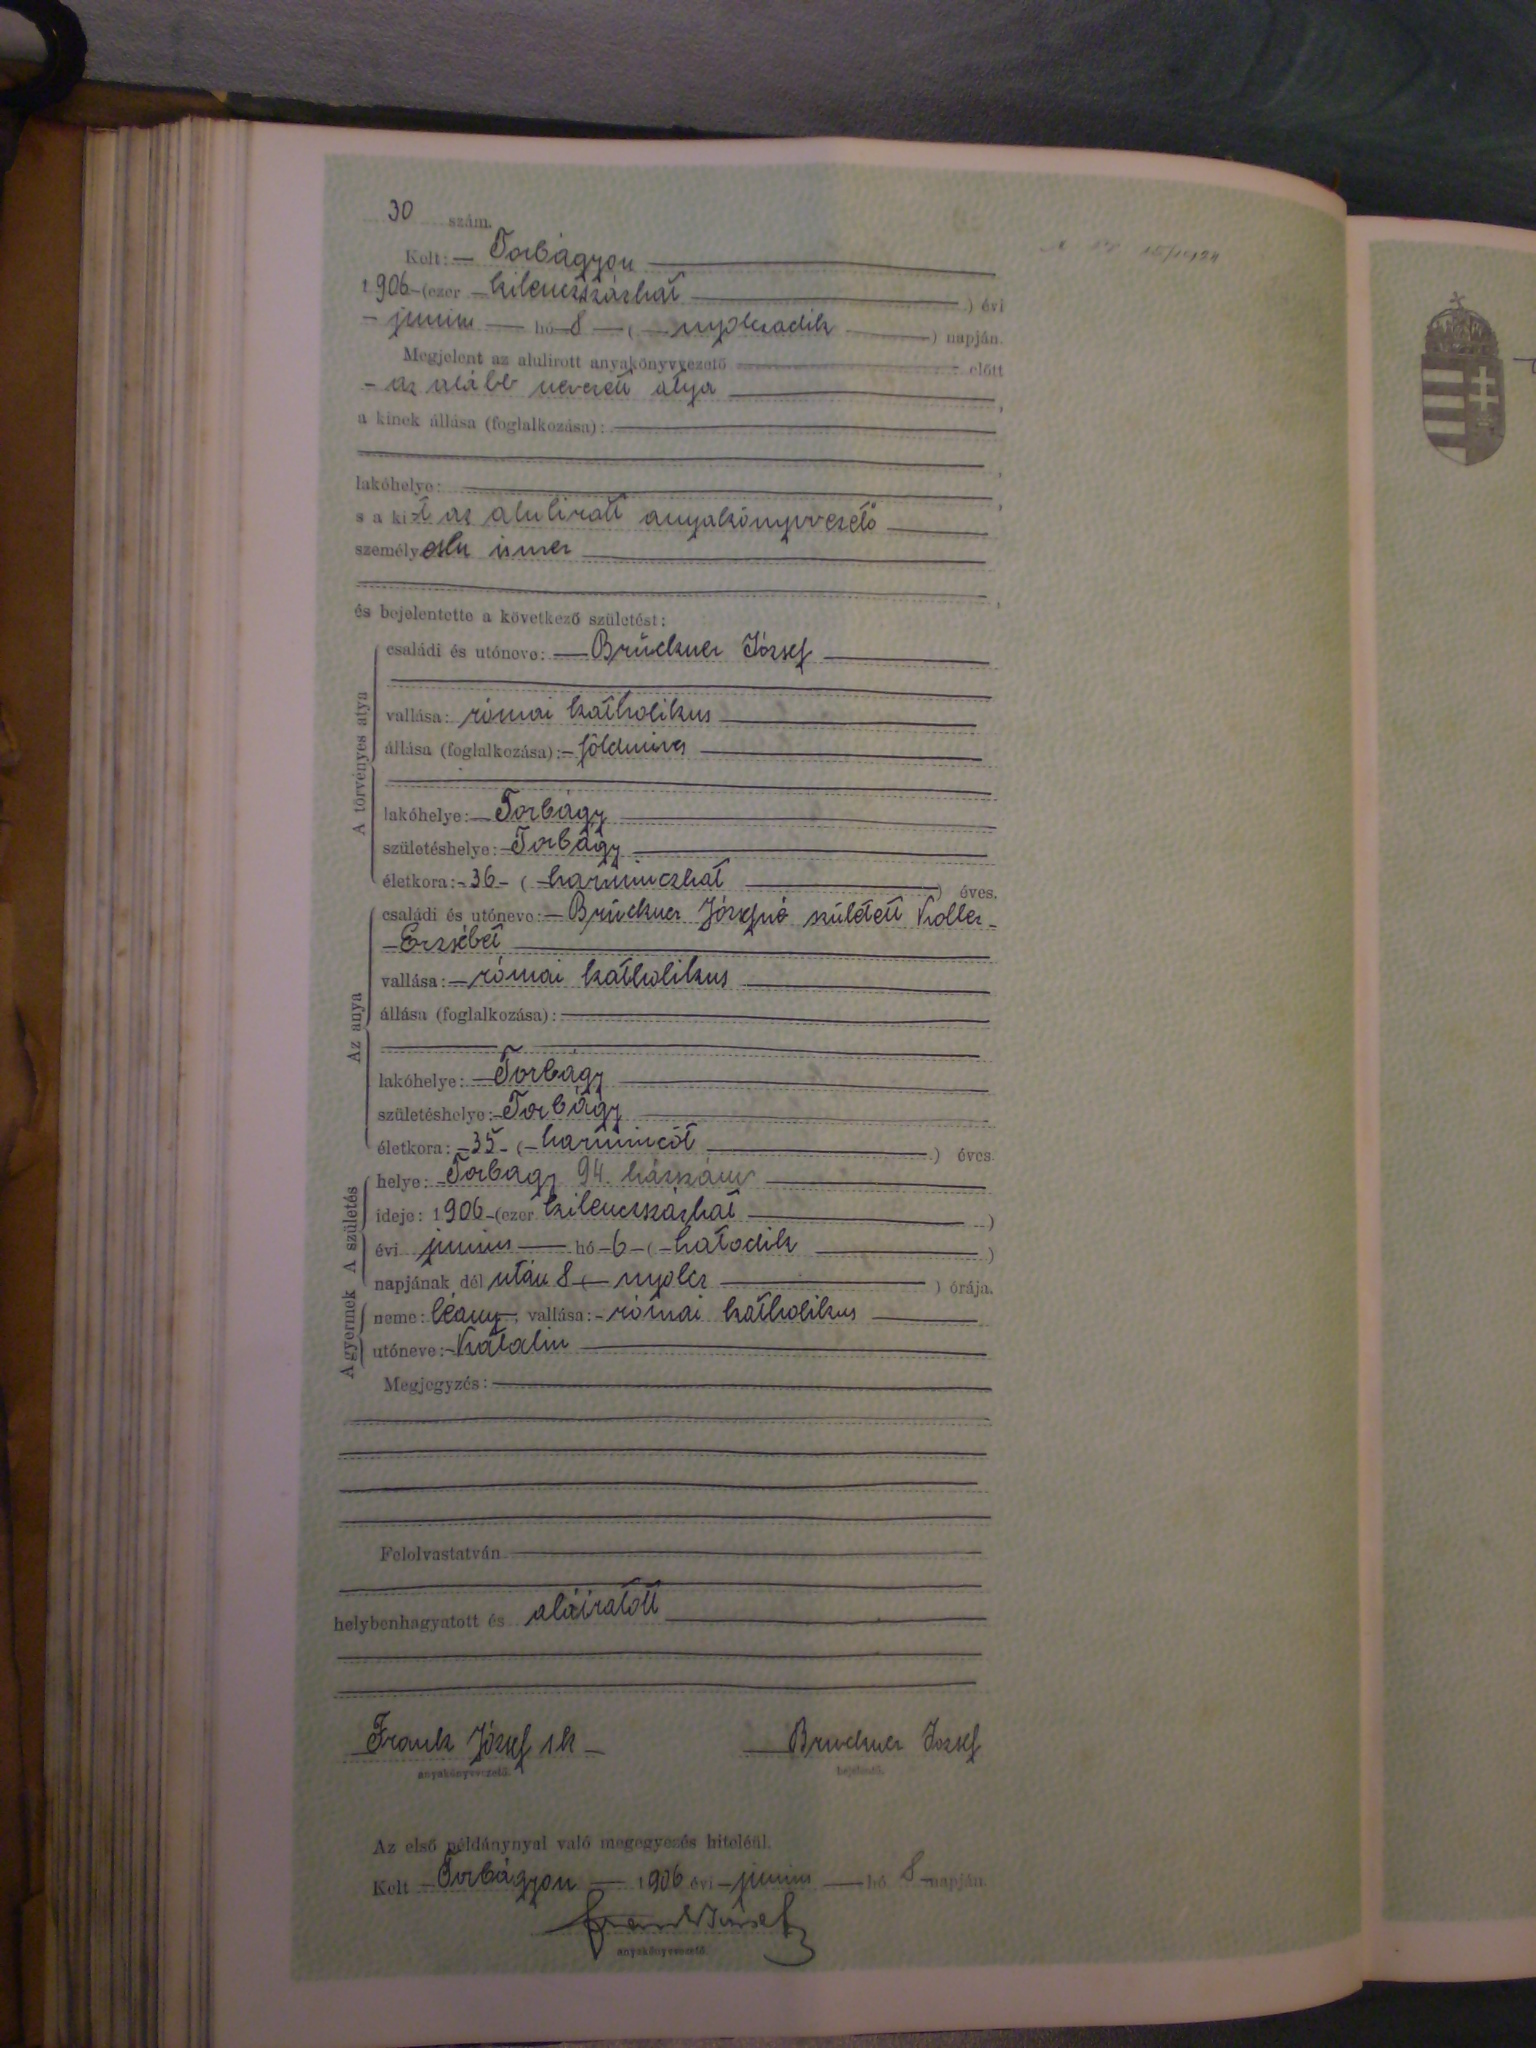 30 szám.
Kelt: Torbágyon
1906 (ezer kilencszázhat) évi
junius hó 8 (nyolczadik) napján.
Megjelent az alulirott anyakönyvvezető előtt
az alább nevezett atya,
a kinek állása (foglalkozása):
,
lakóhelye: ,
s a kit az alulirott anyakönyvvezető
személyesen ismer
,
és bejelentette a következő születést:
A törvényes atya
családi és utóneve: Brückner József
vallása: római katholikus
állása (foglalkozása): földmives
lakóhelye: Torbágy
születéshelye: Torbágy
életkora: 36 (harminczhat) éves.
Az anya
családi és utóneve: Brückner Józsefné született Koller
Erzsébet
vallása: római katholikus
állása (foglalkozása):
lakóhelye: Torbágy
születéshelye: Torbágy
életkora: 35 (harminczöt) éves.
A születés
helye: Torbágy 94. házszám
ideje: 1906 (ezer kilencszázhat)
évi junius hó 6 (hatodik)
napjának dél után 8 (nyolcz) órája.
A gyermek
neme: léany; vallása: római katholikus
utóneve: Katalin
Megjegyzés:
Felolvastatván
helybenhagyatott és aláiratott
Frank József s.k. Bruckner József
anyakönyvvezető. bejelentő.
Az első példánynyal való megegyezés hiteléül.
Kelt Torbágyon 1906 évi junius hó 8 napján.
Frank József
anyakönyvvezető.